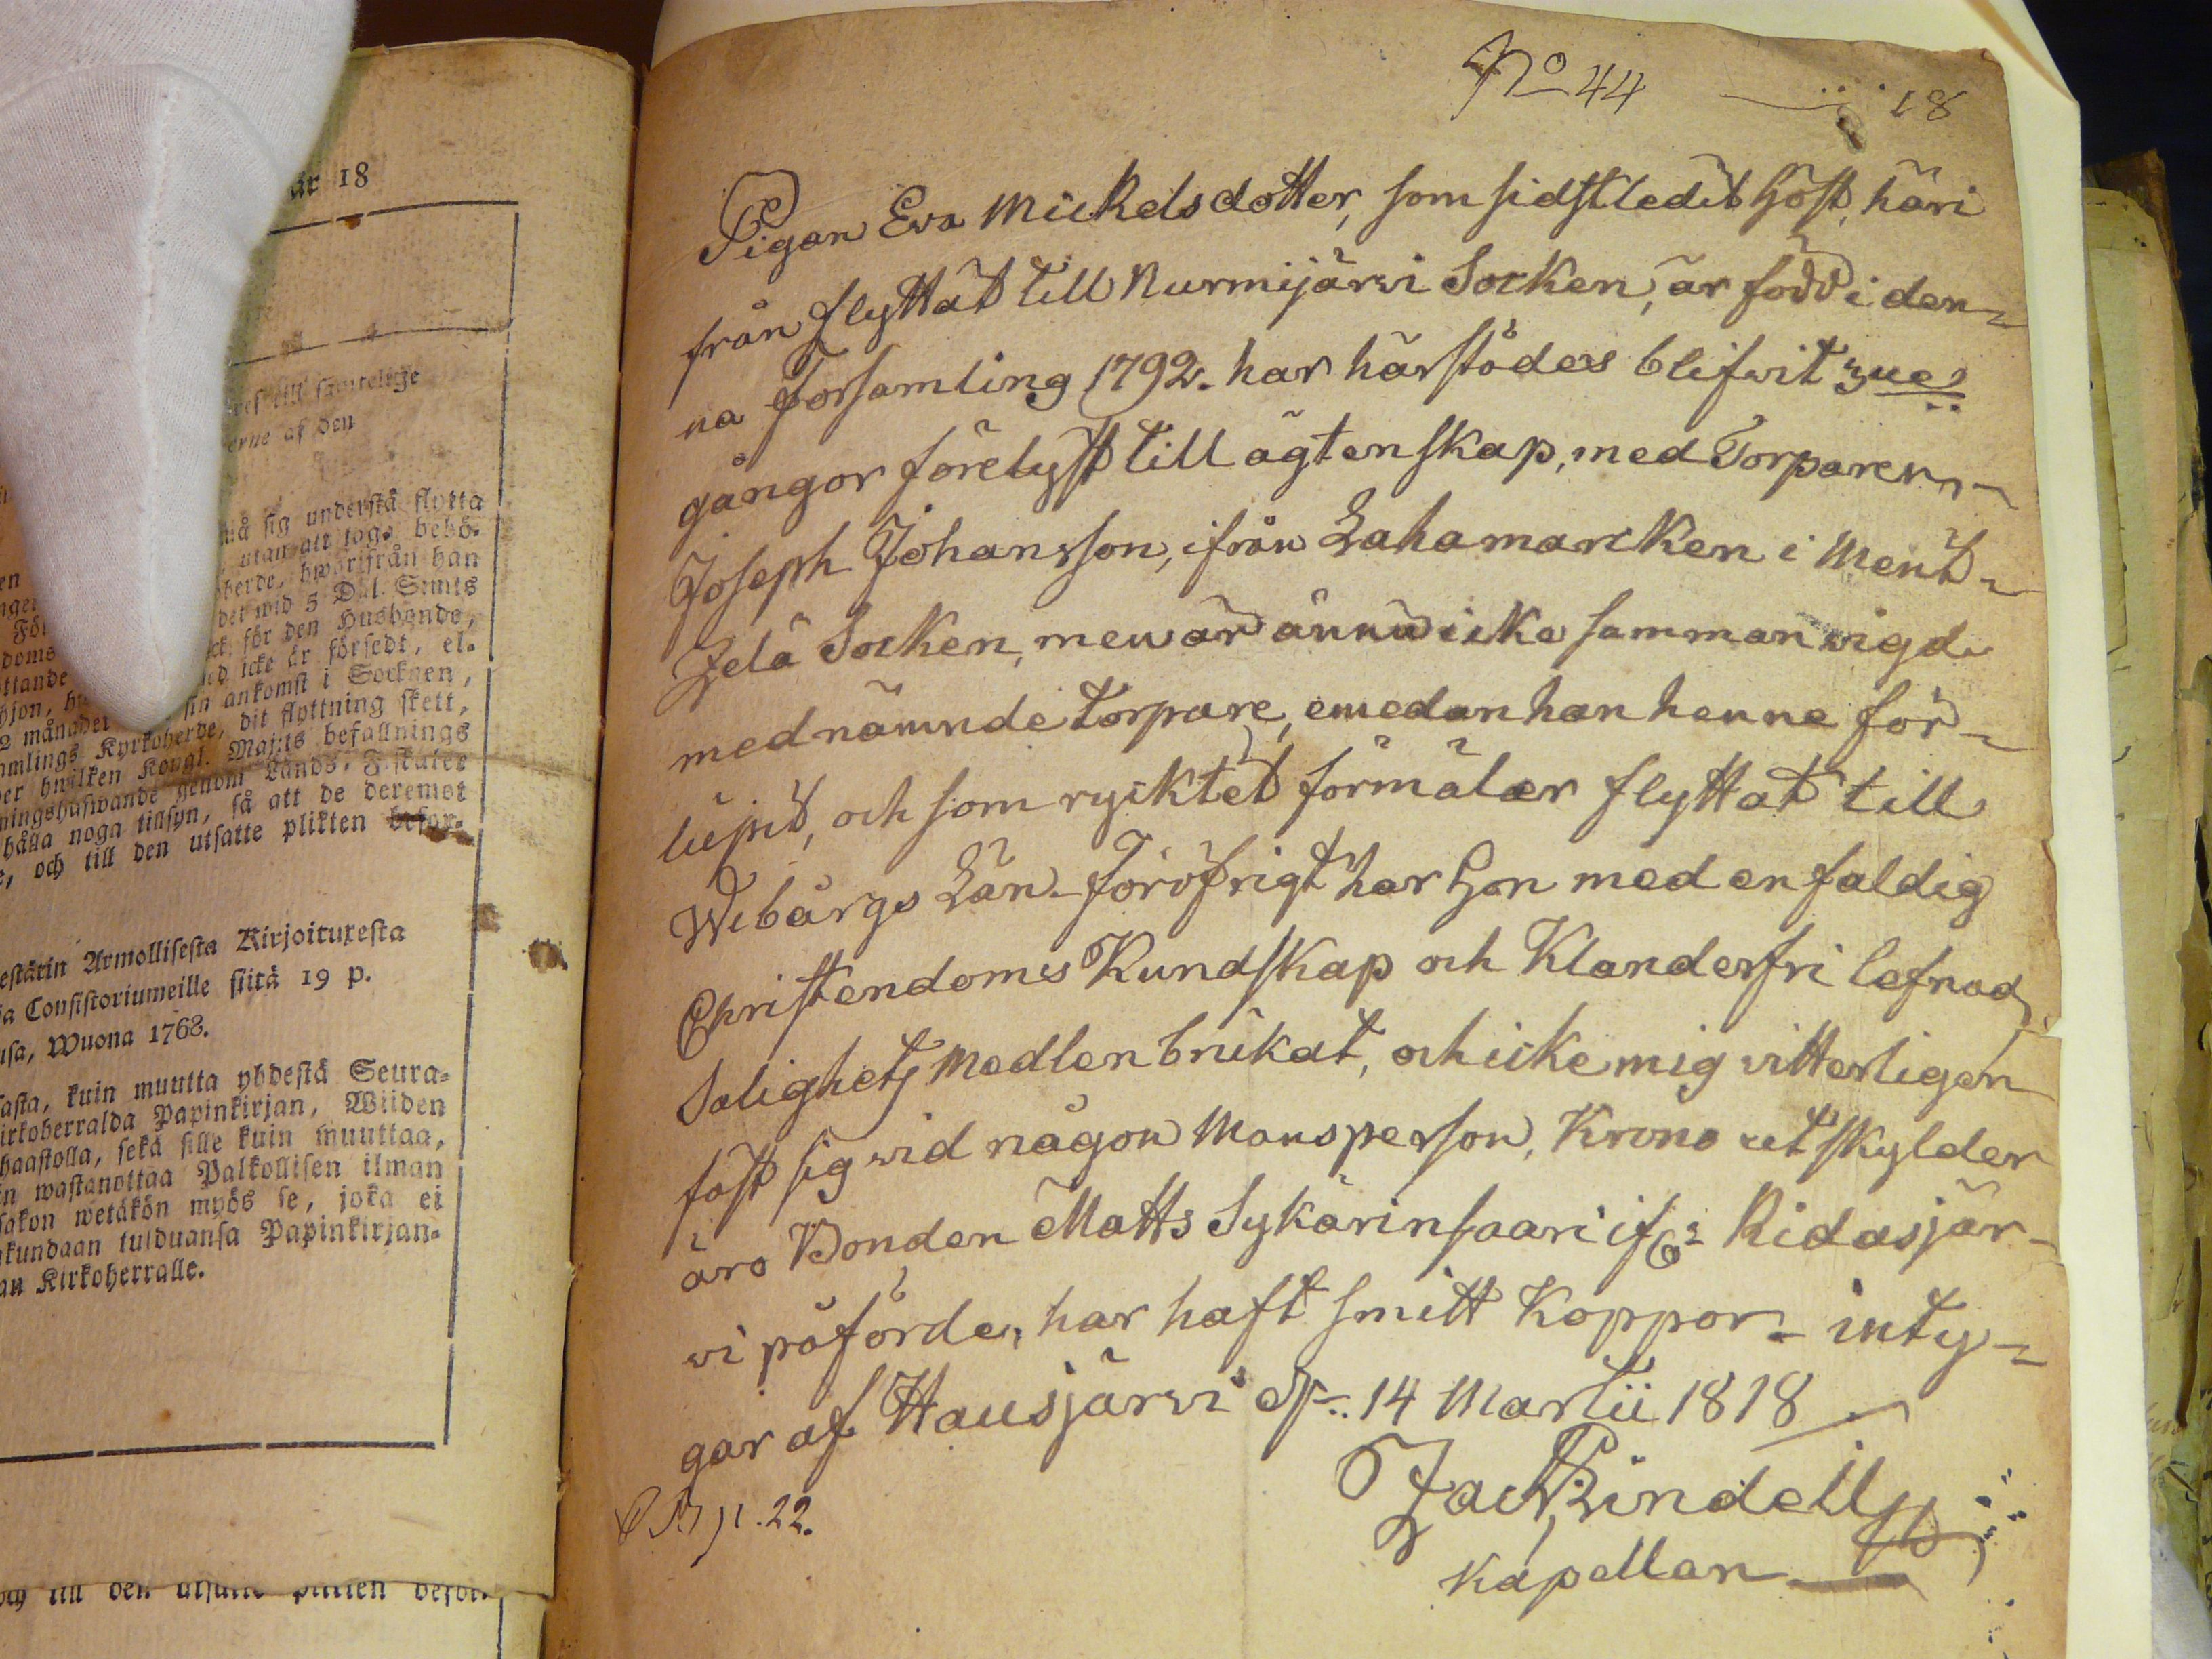 år 18
till samtelige
erne af den
må sig understå flytta
utan att tags behö-
oherde, hwarifrån han
det wid 5 Dal. Smts
ck, för den Husbonde,
icke är försedt, el-
sin ankomst i Socknen,
2 månader
mlings Kyrkoherde, dit flyttning skett,
er hwilken Kongl. Maj:ts befallnings
ningshafwande genom Lands-Fiskaler
hålla noga tillsyn, så att de deremot
e, och till den utsatte plikten befor-
estätin Armollisesta Kirjoituxesta
a Consistoriumeille siitä 19 p.
usa, Wuona 1768.
asta, kuin muutta yhdestä Seura-
irkoherralda Papinkirjan, Wiiden
haastolla, sekä sille kuin muuttaa,
n wastanottaa Palkollisen ilman
sakon wetäkön myös se, joka ei
kundaan tulduansa Papinkirjan-
an Kirkoherralle.
och till den utsatte plikten befor-
No 44 18
Pigan Eva Mickelsdotter, som sidstledit Höst, häri
från flyttat till Nurmijärvi Socken, är född i den-
na Församling 1792. har härstädes blifvit 3ue
gångor förelyst till ägtenskap, med Torparen
Joseph Johansson, ifrån Lahamarcken i Ment-
zelä Socken, men är ännu icke samman vigd
med nämnde torpare, emedan han henne för-
lupit, och som rycktet förmäler flyttat till
Wibårgs Län. Föröfrigt har Hon med enfaldig
Christendoms Kundskap och Klanderfri lefnad
Salighets Medlen brukat, och icke mig vitterligen
fäst sig vid någon Mansperson, Krono utskylder
äro Bonden Matts Sykärinsaari if Ridasjär-
vi påförde, har haft smitt Koppor. inty-
gar af Hausjärvi d. 14 Martii 1818
p. 22.
Lindell
Kapellan